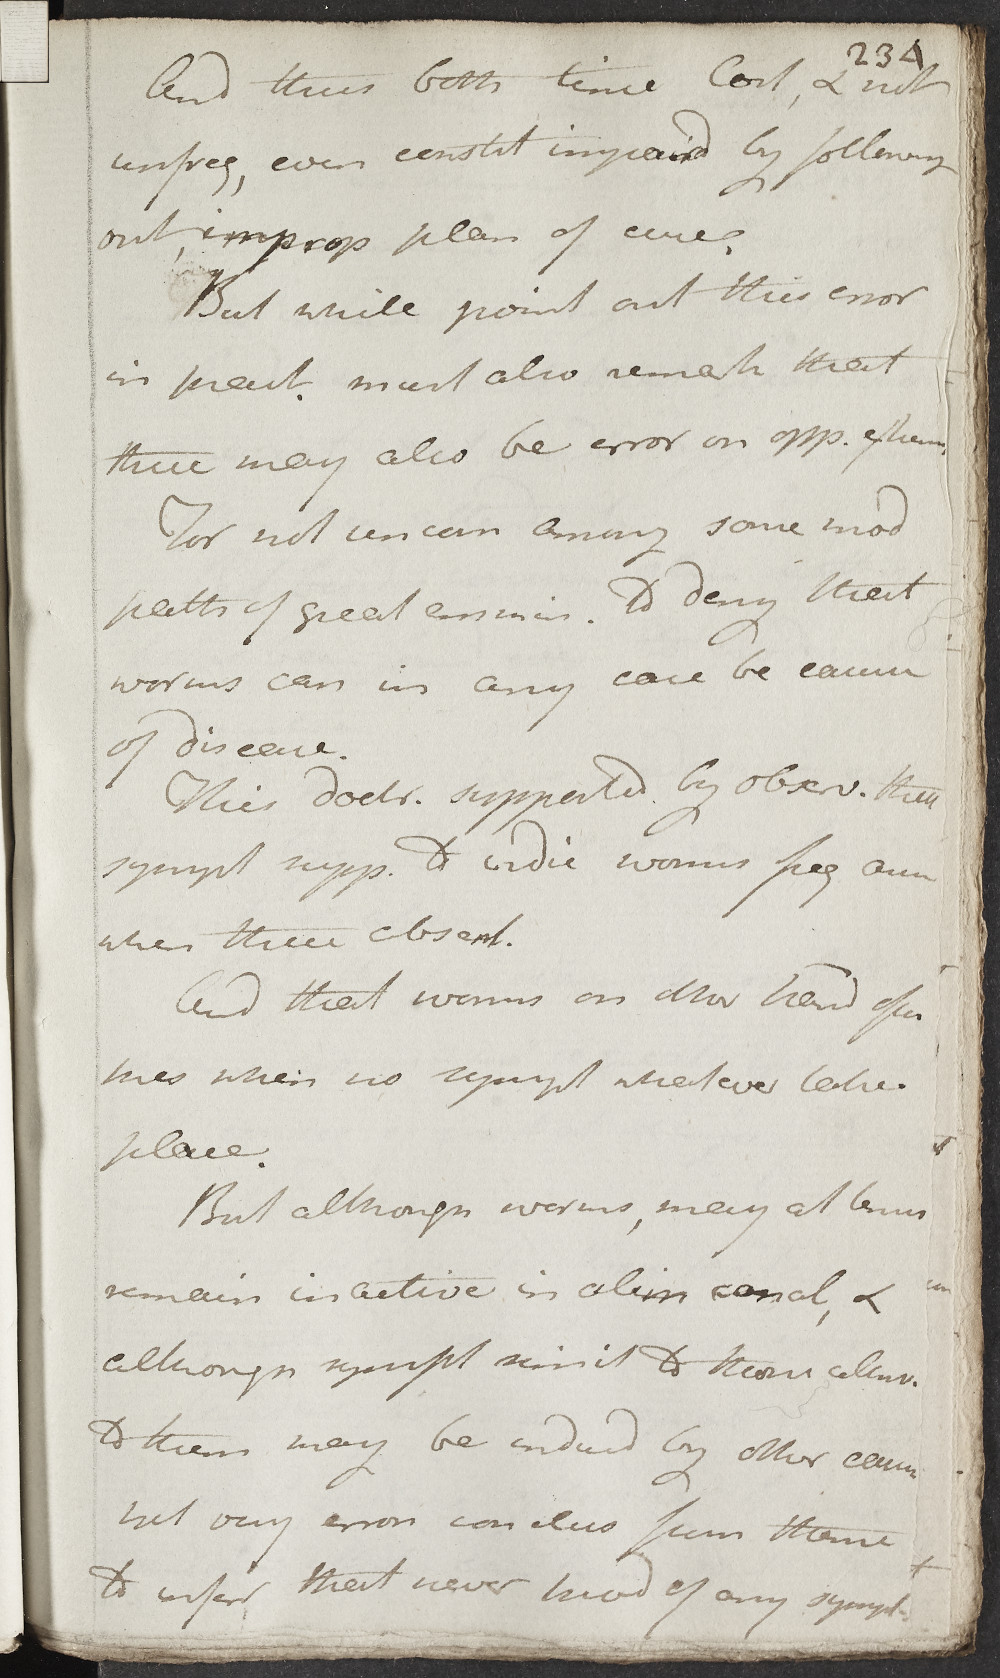 234
And thus both time lost, & not
unfreq, even constit impaird by following
out, improp plan of cure.
But while point out this error
in pract. must also remark that
there may also be error on opp. extrem.
For not uncom among some mod
paths of great eminen. To deny that
worms can in any case be cause
of disease.
This doctr. supported by observ. that
sympt supp. to indic worms freq occur
when these absent.
And that worms on other hand often
when no sympt whatever take
place.
But although worms, may at times
remain inactive in alim canal, &
although sympt simil to those attrib.
to them may be induced by other causes
yet very erron conclus from these
to infer that never prod of any sympt.